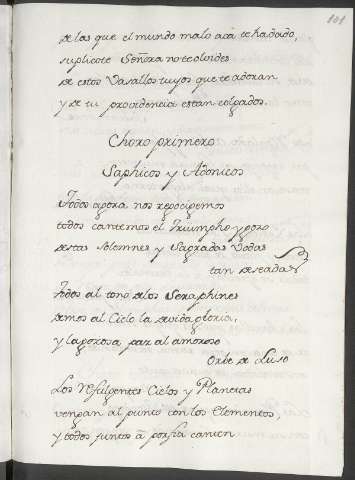 101
de las que el mundo malo acà te hà dado,
suplicote Señora no te oluides
de estos Vasallos tuyos que te adoran
y de tu prouidencia estan colgados.
Choro primero
Saphicos y Adonicos
Todos agora nos regocigemos
todos cantemos el Triumpho y gozo
destas Solemnes y Sagradas Vodas
tan deseadas
Todos al tono de los Seraphines
demos al Cielo la deuida gloria,
y la gozosa paz al amoroso
Orbe de Luso
Los Refulgentes Cielos y Planetas
vengan al punto con los Elementos,
y todos juntos à porfia canten